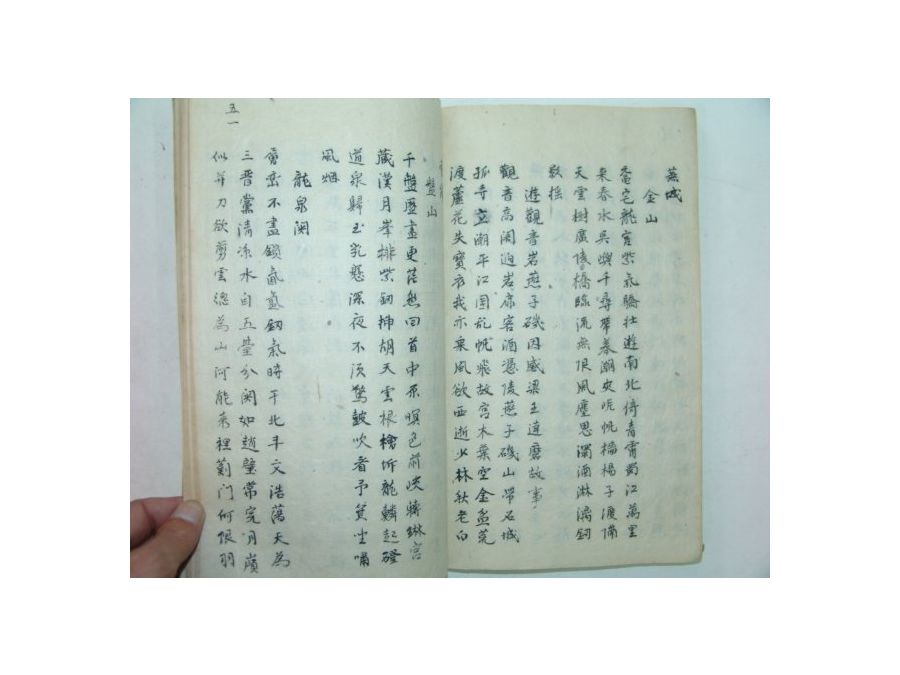 蕪城
金山
黿宅龍宮紫氣驕壯遊南北倚青霄蜀江萬里
來春水吳嶼千尋帶暮潮央帆檣楊子渡滿
天雲樹廣陵橋臨流無限風塵思濁酒淋漓釰
歌搖
遊觀音岩燕子磯因感梁王達磨故事
觀音高閣迥岩扉客酒憑陵燕子磯山帶石城
孤寺立潮平江國亂帆飛故宮木葉空金盌荒
渡蘆花失寶衣我亦乘風欲西逝少林秋老白
盤山
千盤歷盡更茫然回首中原暝色前峽轉琳宮
藏漢月峯排紫釰揷胡天雲根檜坼龍鱗起磴
道泉歸玉乳懸深夜不須驚鼓吹者予箕坐嘯
風烟
龍泉関
不盡鎖氤氳釰氣時干北斗文浩蕩天為
三晋黨清凉水自五臺分関如趙璧常完月嶺
似并刀欲剪雲總為山河能表裡薊門何限羽
五一